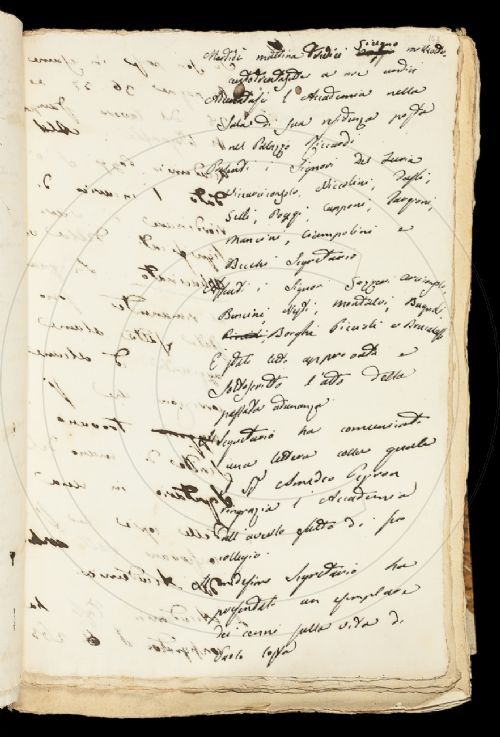 Martedi mattina tredici Giugno mille otto
cento trentasette a ore undici
Adunatasi l'Accademia nella
Sala di sua residenza posta
nel Palazzo Riccardi
Presenti i Signori del Furia
Vicearciconsolo, Niccolini, Zagli,
Gelli, Poggi, Capponi, Targioni,
Mancini, Ciampolini e
Becchi Segretario
Assenti i Signori Gazzeri arciconsolo
Bencini Nesti, Montalvi, Bagnoli
Borghi Piccioli e Brucalassi
È stato letto approvato e
Sottoscritto l'atto della
passata adunanza
Il Segretario ha comunicato
una lettera colla quale
il Sig. Amedeo Peyron
ringrazia l'Accademia
dell'averlo eletto di suo
collegio.
Il medesimo Segretario ha
presentato un esemplare
dei cenni sulla vita di
Paolo Costa